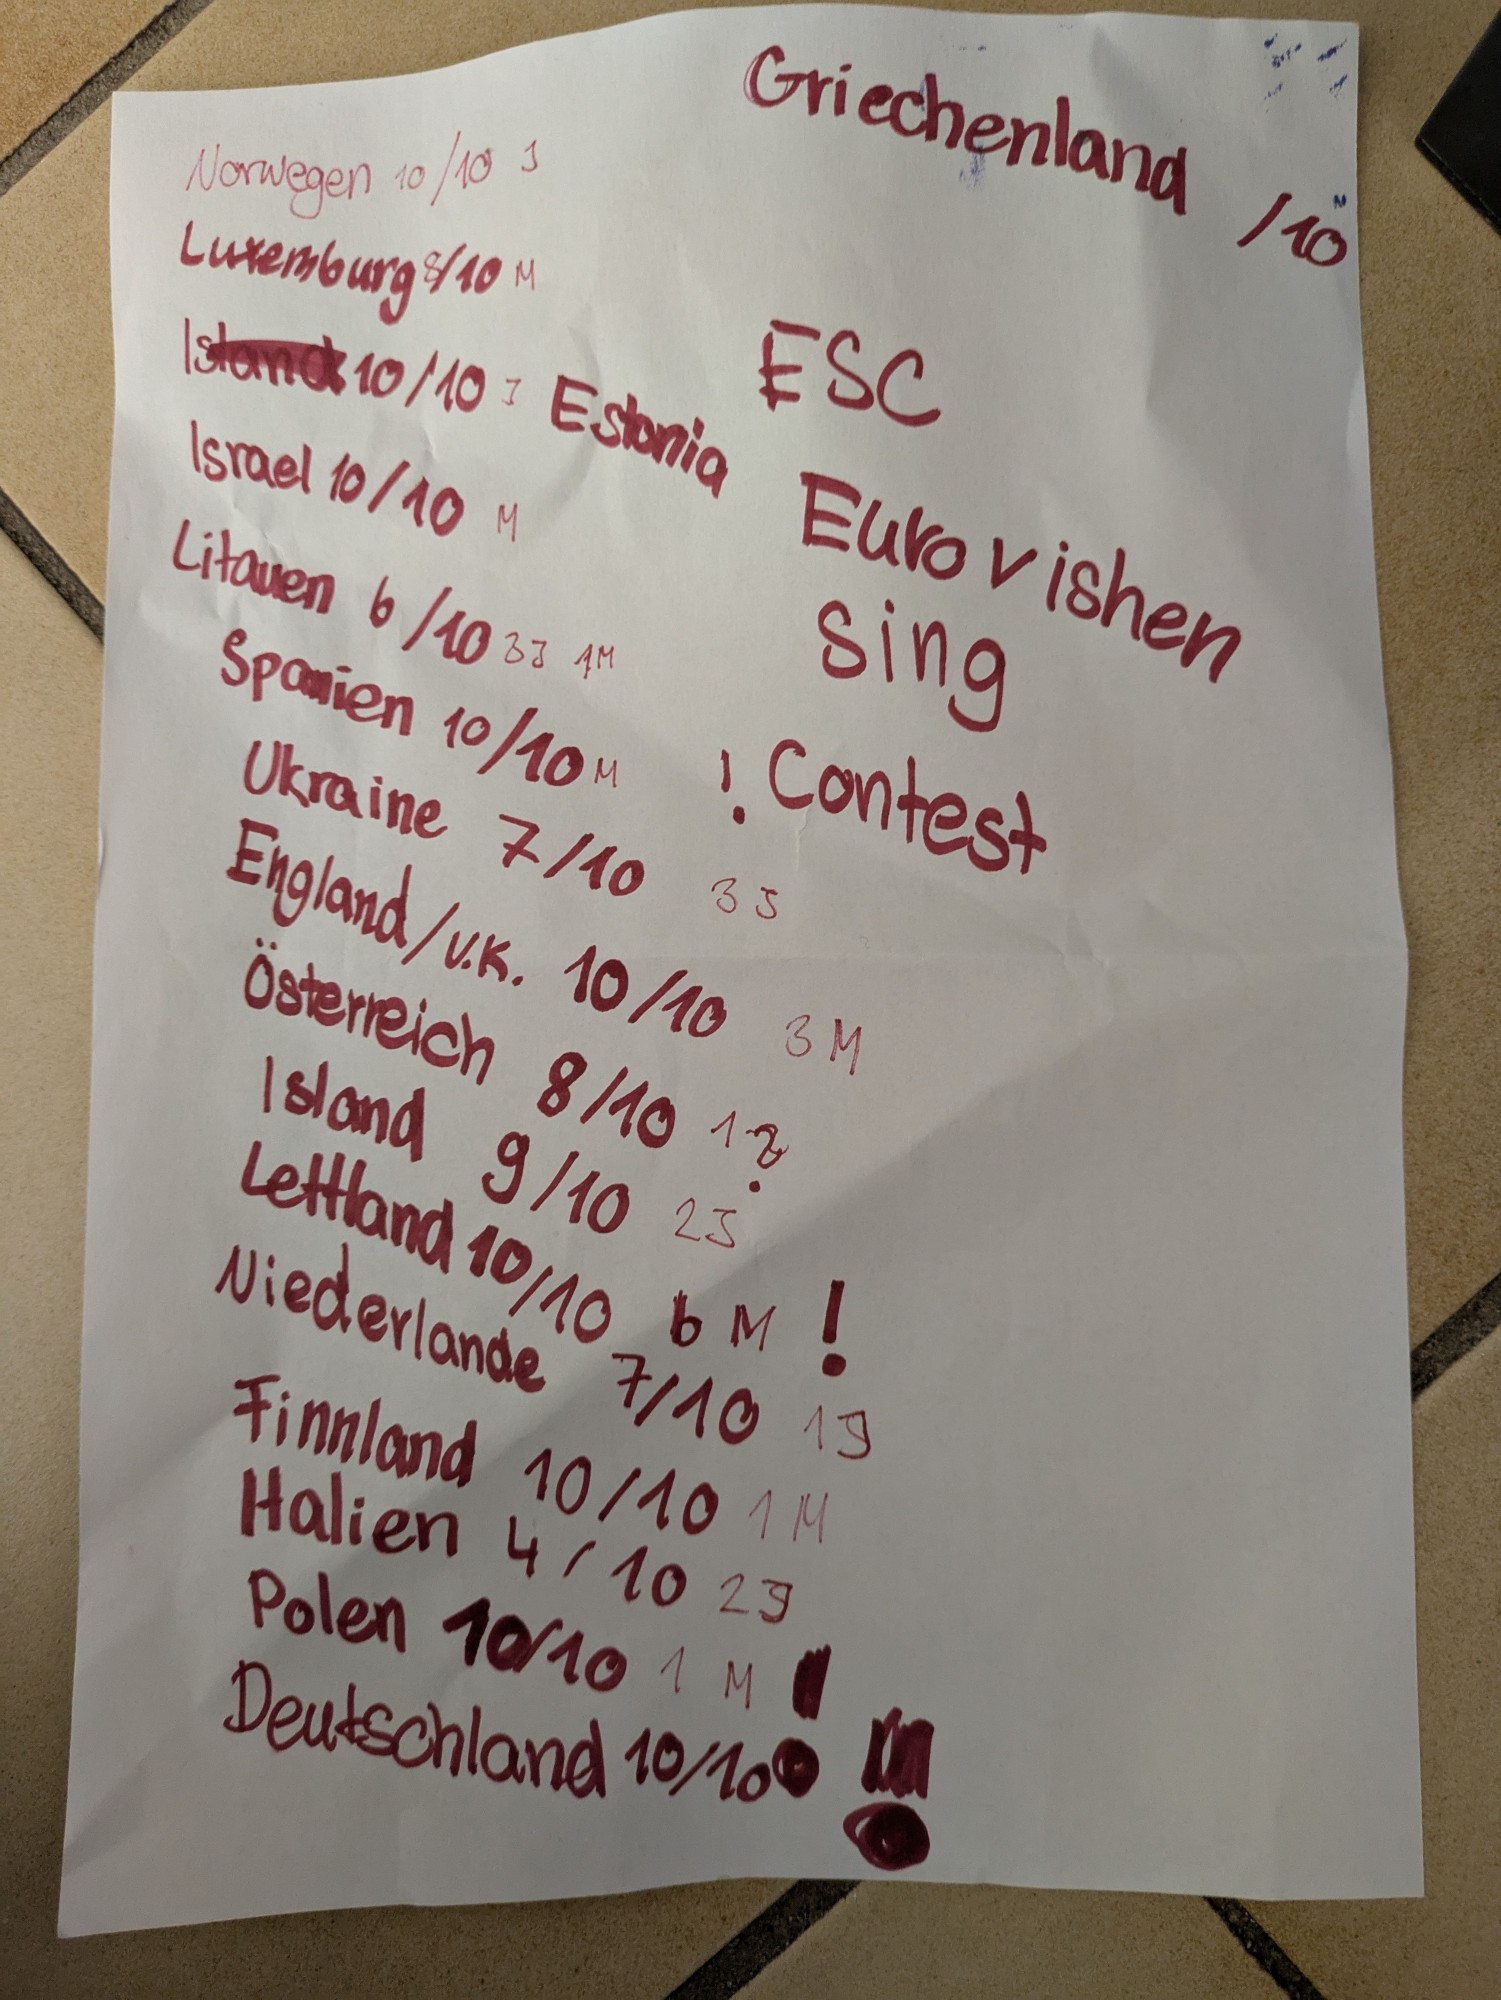 Griechenland /10
Norwegen 10/10 J
Luxemburg 8/10 M
Island 10/10 J Estonia
Israel 10/10 M
Litauen 6/10 3J 1M
Spanien 10/10 M
Ukraine 7/10 3J
England/U.K. 10/10 3M
Österreich 8/10 1 ?
Island 9/10 2J
Lettland 10/10 6 M !
Niederlande 7/10 1J
Finnland 10/10 1 M
Italien 4/10 2J
Polen 10/10 1 M !
Deutschland 10/10 !
ESC
Eurovishen
Sing
! Contest